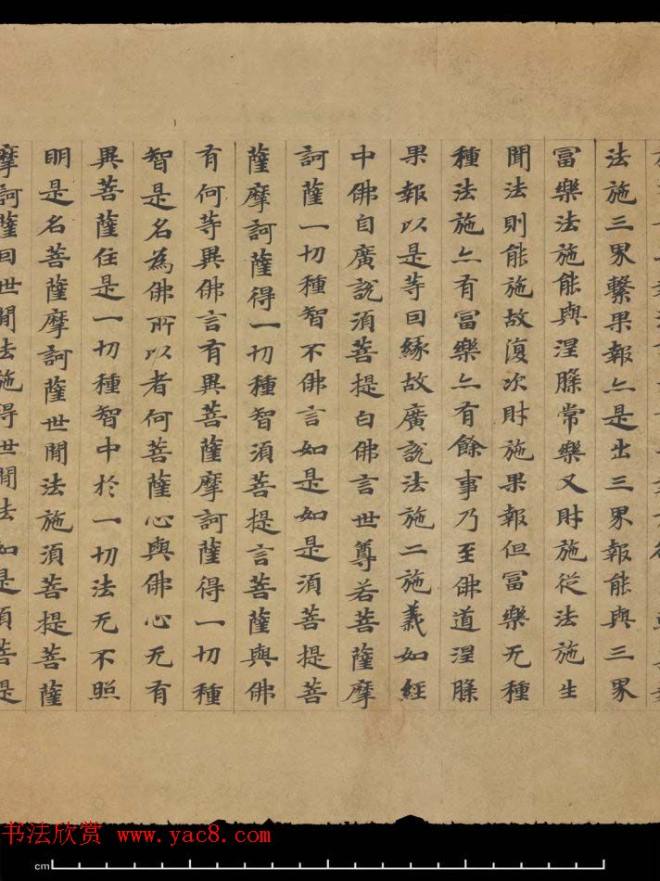 法施三界繫果報亦是出三界報能與三界
冨樂法施能與涅槃常樂又財施從法施生
聞法則能施故復次財施果報但冨樂无種
種法施亦有冨樂亦有餘事乃至佛道涅槃
果報以是等因緣故廣說法施二施義如經
中佛自廣說須菩提白佛言世尊若菩薩摩
訶薩一切種智不佛言如是如是須菩提菩
薩摩訶薩得一切種智須菩提言菩薩與佛
有何等異佛言有異菩薩摩訶薩得一切種
智是名為佛所以者何菩薩心與佛心无有
異菩薩住是一切種智中於一切法无不照
明是名菩薩摩訶薩世間法施須菩提菩薩
摩訶薩因世間法施得世間法如是須菩提
书法欣赏 www.yac8.com
cm